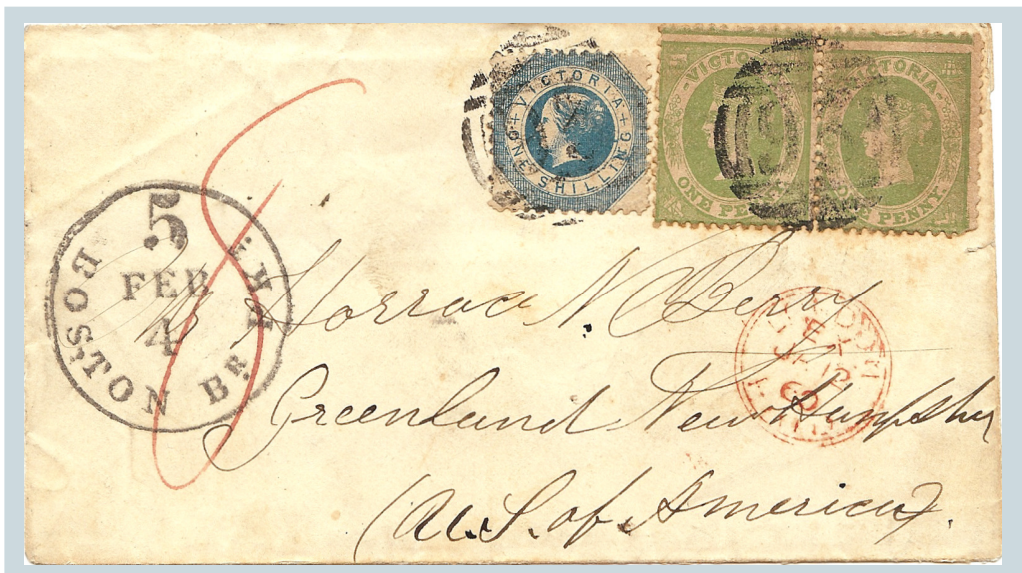 VICTORIA
ONE SHILLING
VICTORIA
ONE PENNY
VICTORIA
ONE PENNY
5
FEB
4
BOSTON BR. PKT.
Horrac N. Berry
LONDON
Greenland New Hampshr
(U.S. of America).